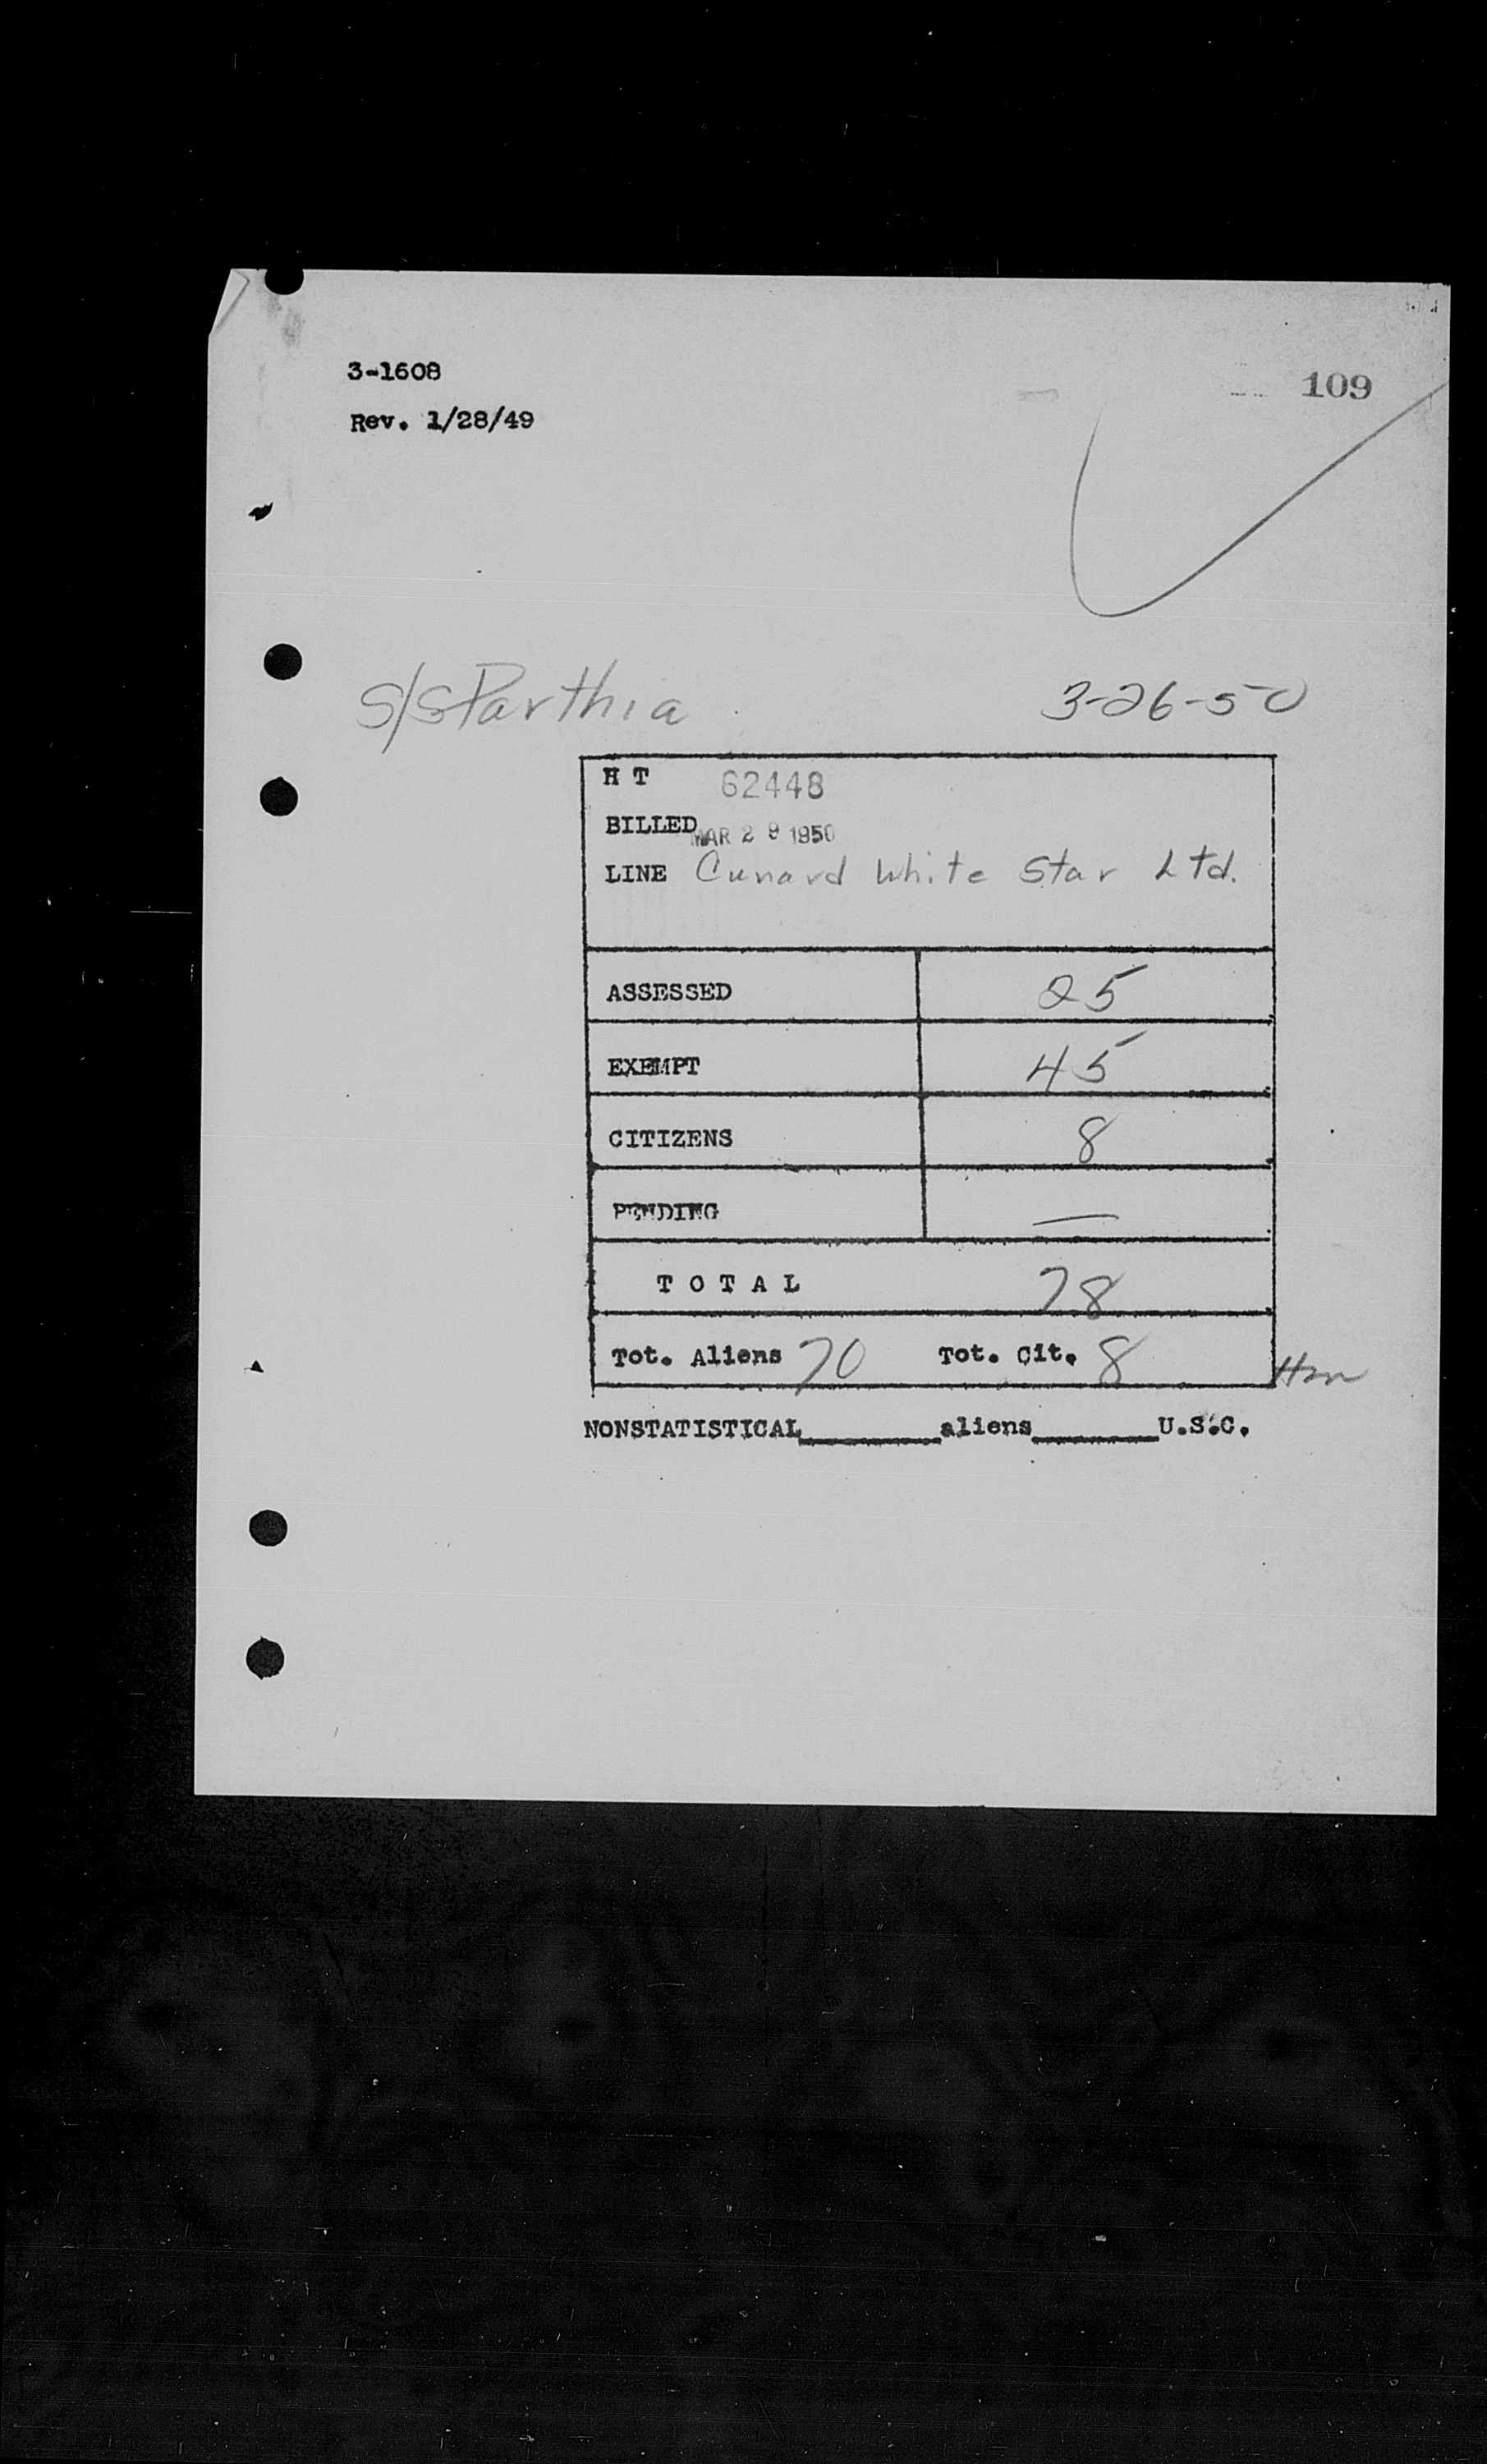 3-1608
109
Rev. 1/28/49
S/S Parthia
3-26-50
H T 62448
BILLED MAR 29 1950
LINE Cunard White Star Ltd.
ASSESSED 25
EXEMPT 45
CITIZENS 8
PENDING —
T O T A L 78
Tot. Aliens 70 Tot. Cit. 8
NONSTATISTICAL__________aliens_________U.S.C.